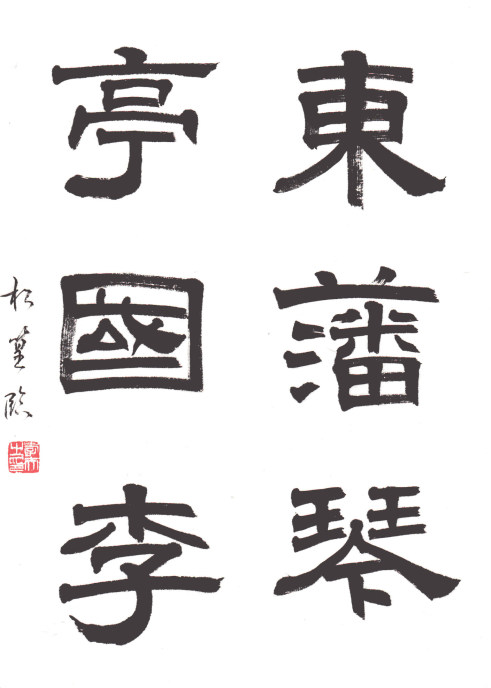 東藩琴
亭國李
松臨